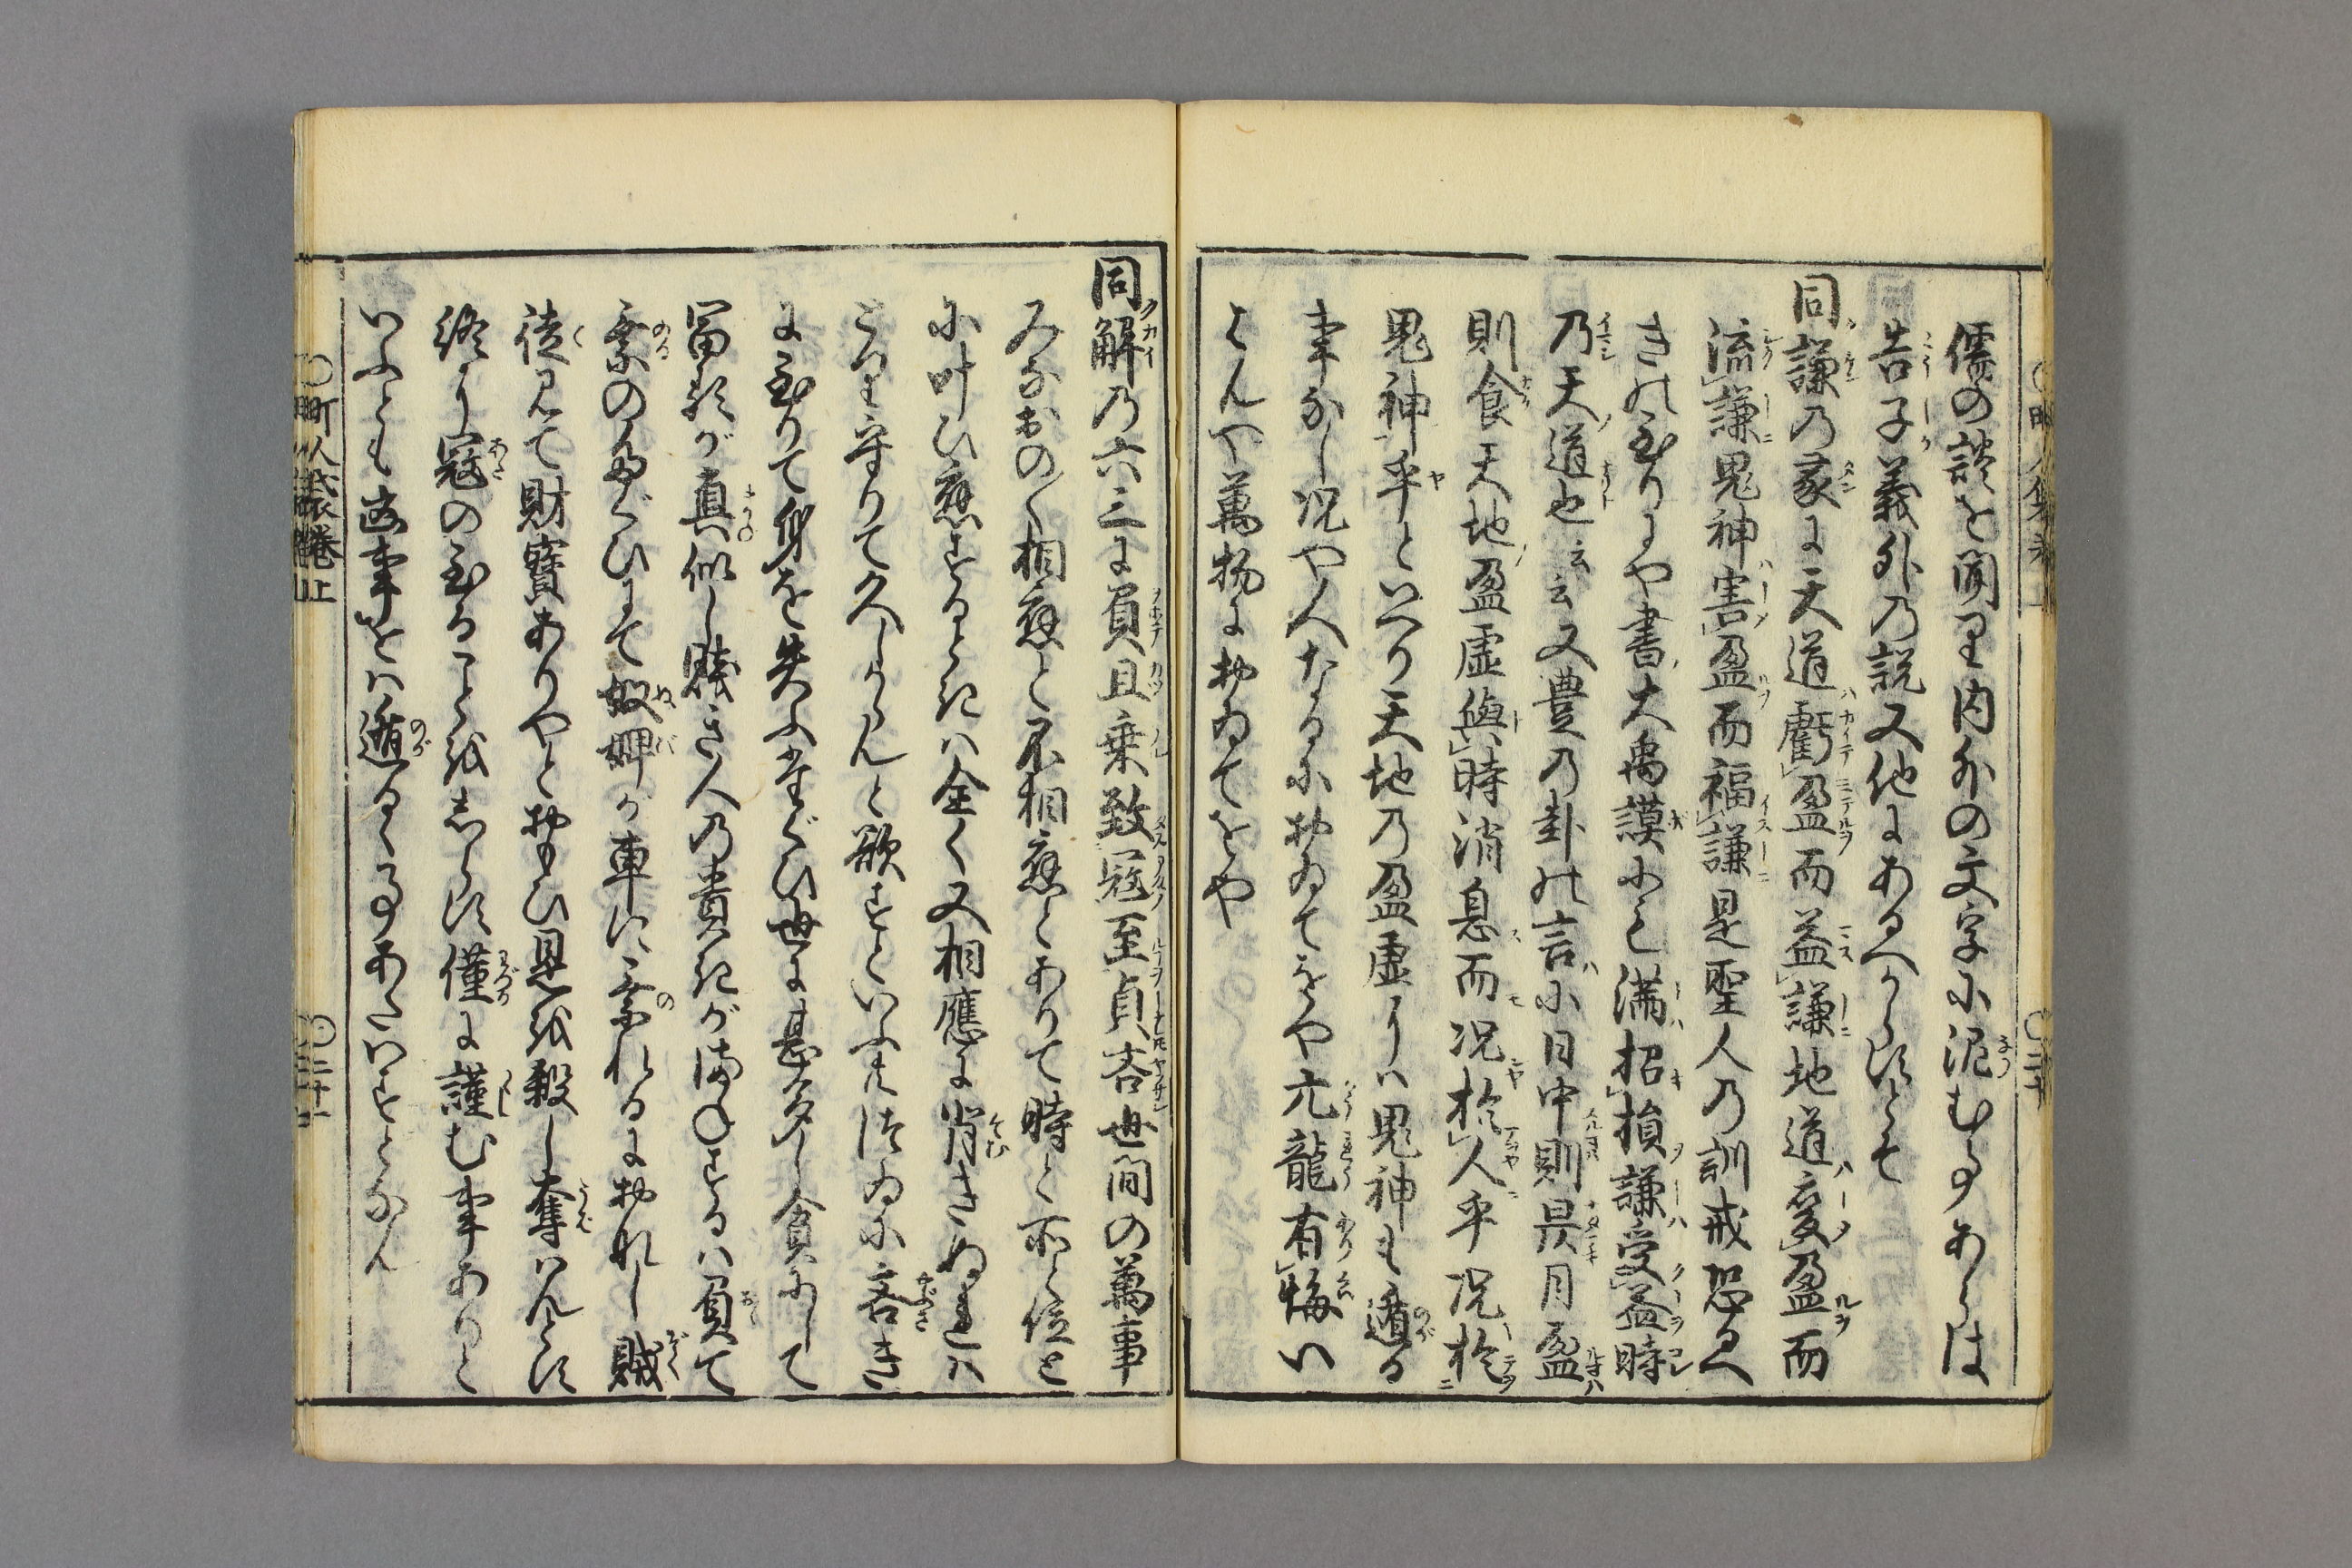 儒の談を聞て内外の文字に泥む 事あらは
告子義外の説又他にあるへからすとそ
同謙の彖に天道虧盈而益謙地道変盈而
流謙鬼神害盈而福謙是聖人の訓戒恐るへ
きの至りにや書大禹謨にも満招損謙受益時
乃天道也云云又豊の卦の言に日中則昃月盈
則食天地盈虚與時消息而况於人乎况於
鬼神乎といへり天地の盈虚よりは鬼神も遁る
事なし况や人なるにおゐてをや亢龍有悔い
はんや萬物におゐてをや
同解の六三に負且乗致寇至貞吝世間の萬事
みなおの〱相應と不相應とありて時と所と位と
に叶ひ應するときは全く又相應に背きぬれは
とりて守りて久しからんと欲すといふ共つゐに吝き
に至りて身を失ふたぐひ世に甚多し貪にして
冨るが真似し賤き人の貴きがまねするは負て
乗のたぐひにて奴婢が車に乗れるにおなし賊
徒見て財寶ありやとおもひ是を殺し奪はんとす
終に寇の至ることをしらす僅に謹む事ありと
いふとも凶事をは遁るゝ事あたはすとなん
町人袋巻上
二十一